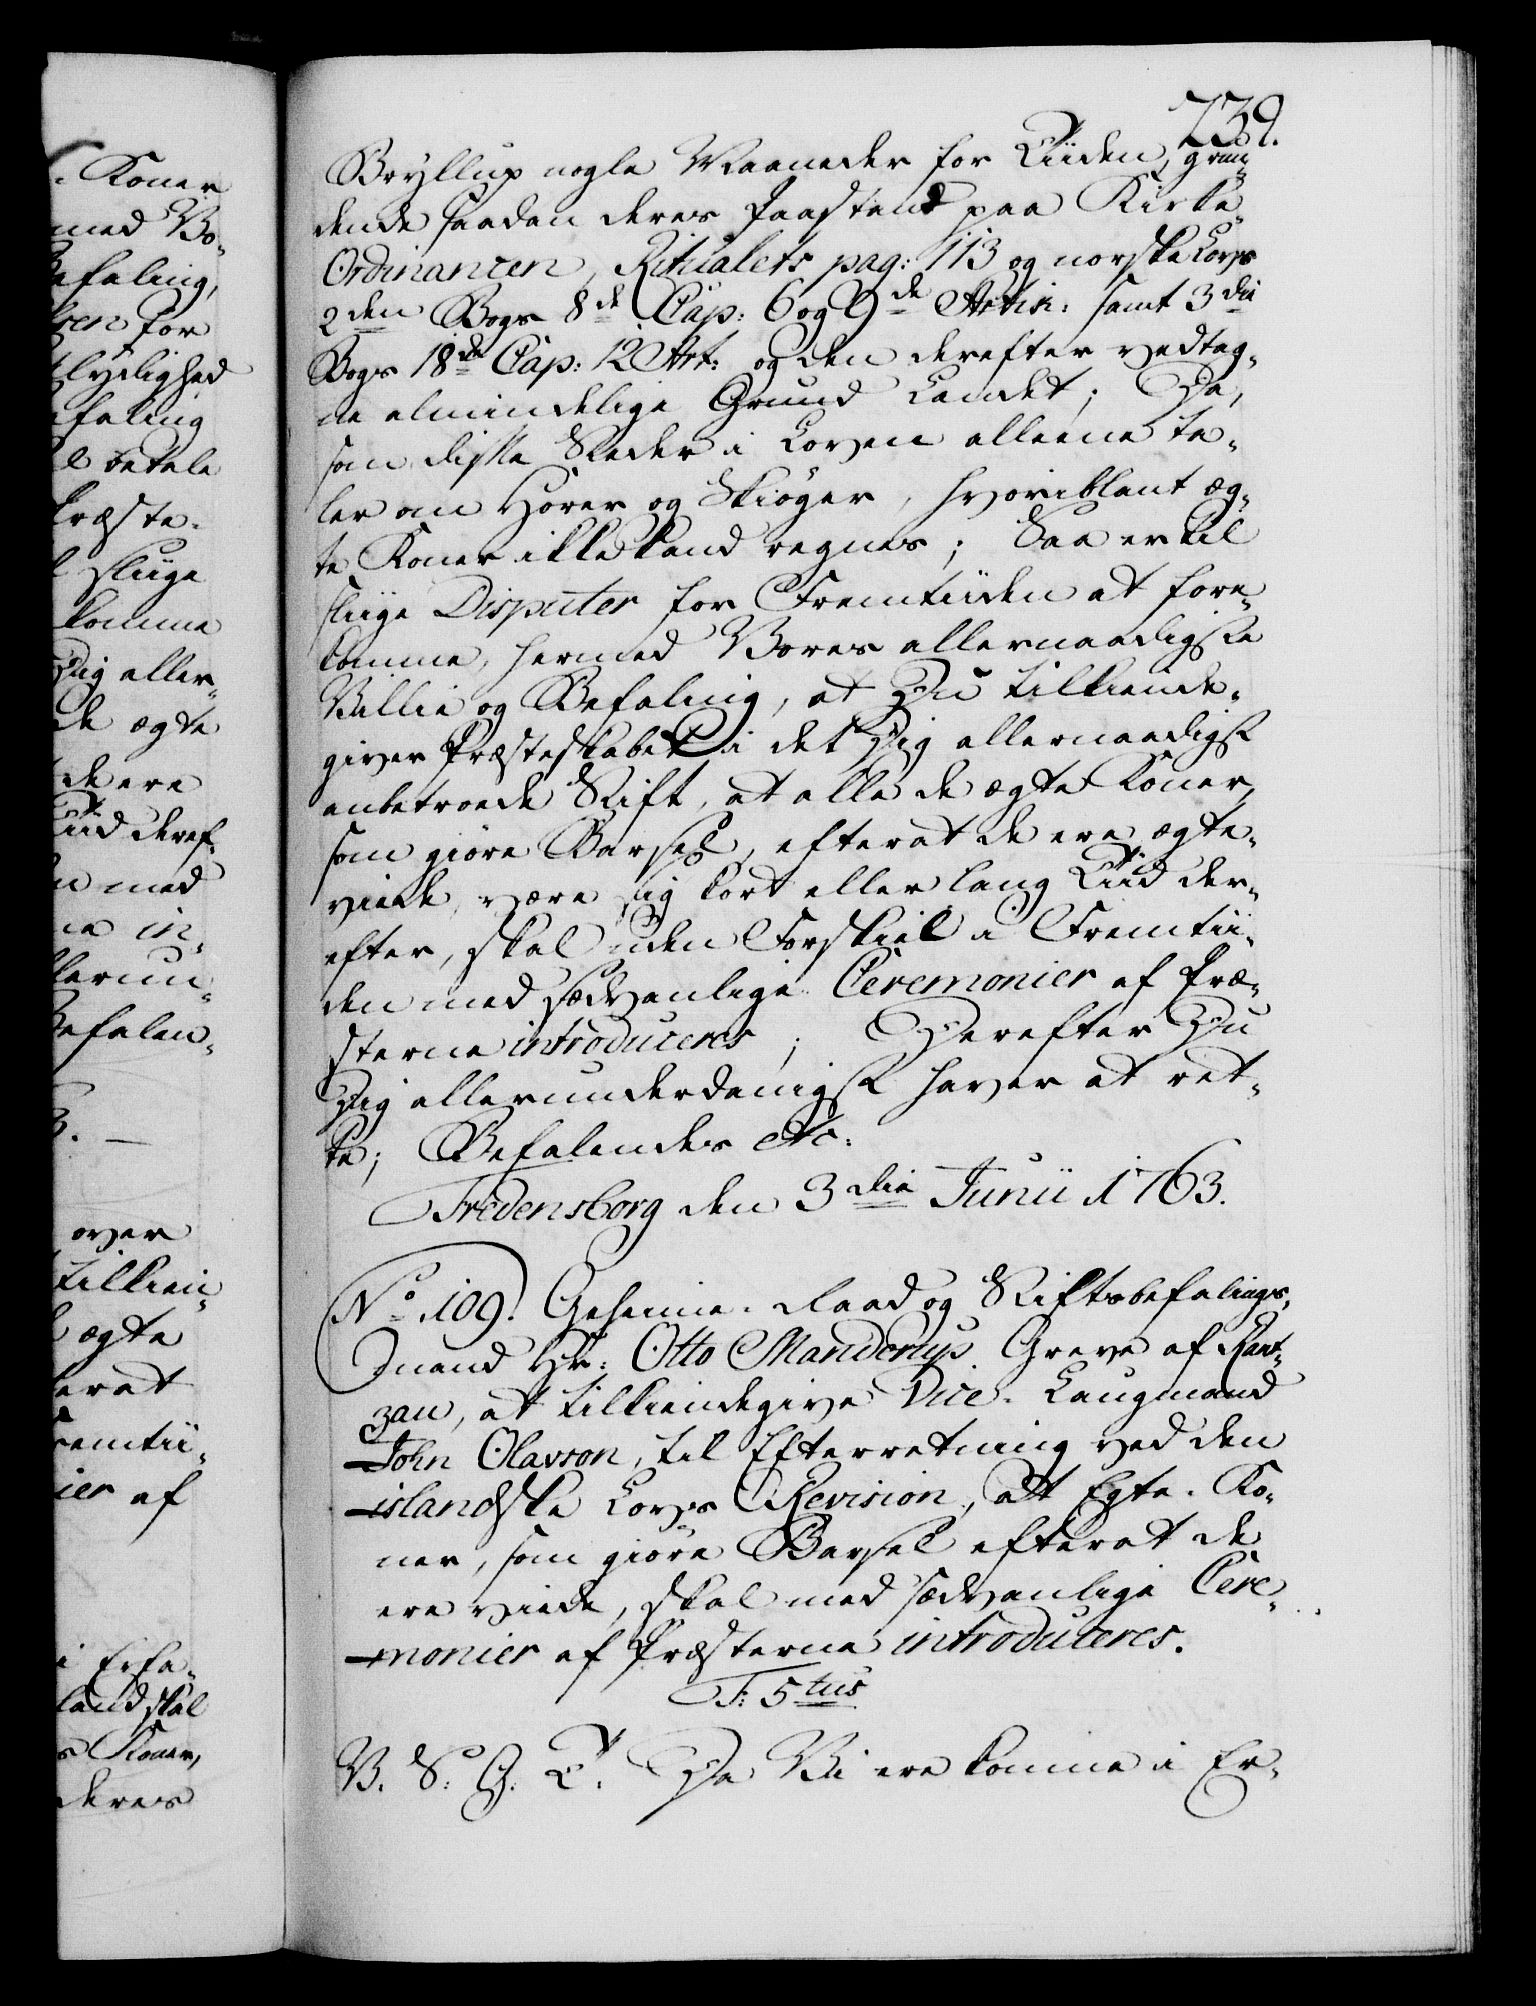 739.
Bryllup nogle Maaneder for Tiiden, grun-
dende saadan deres Paastand paa Kirke-
Ordinancen, Ritualets pag: 113 og norske Lovs
2den Bogs 8de Cap: 6 og 9de Artik: samt 3die
Bogs 18de Cap: 12 Art: og den derefter vedtag-
ne almindelige Brug i Landet; Da,
som disse Steder i Loven alleene ta-
ler om Horer og Skiøger, hvoriblant æg-
te Koner ikke kand regnes; Saa er til
slige Disputer for Fremtiiden at fore-
komme, hermed Vores allernaadigste
Villie og Befaling, at Du tilkiende-
giver Præsteskabet i det Dig allernaadigst
anbetroede Stift, at alle de ægte Koner,
som giøre Barsel, efterat de ere ægte-
viede, være sig kort eller lang Tiid der-
efter, skal uden Forskiel i Fremtii-
den med sædvanlige Ceremonier af Præ-
sterne introduceres; Derefter Du
Dig allerunderdanigst haver at ret-
te; Befalendes etc:
Fredensborg den 3die Junii 1763.
No. 109. Geheime-Raad og Stiftsbefalings-
mand Hr: Otto Manderup Greve af Rant-
zau, at tilkiendegive Vice-Laugmand
John Olavson, til Efterretning ved den
islandske Lovs Revision, at Egte-Ko-
ner, som giøre Barsel efterat de
ere viede, skal med sædvanlige Cere-
monier af Præsterne introduceres.
F: 5tus
V. S. G. T. Da Vi ere komne i Er-